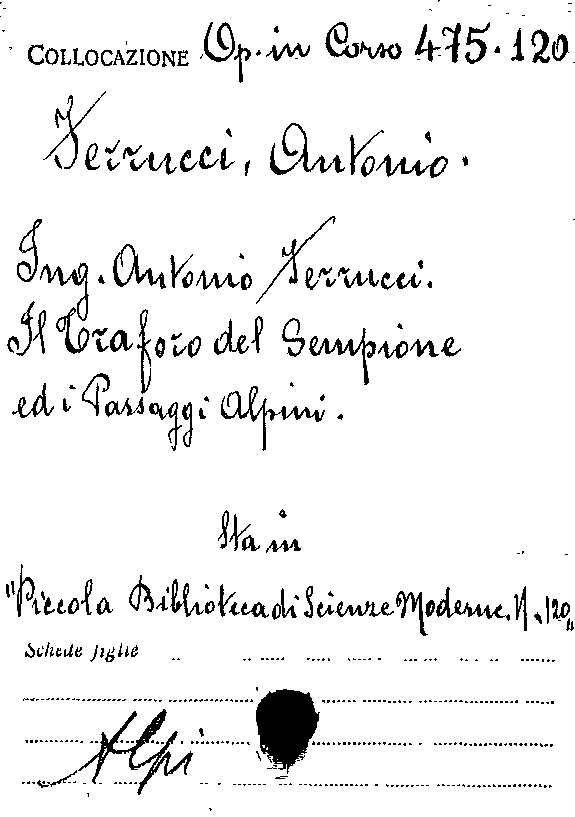 COLLOCAZIONE Op. in Corso 475.120
Ferrucci, Antonio.
Ing. Antonio Ferrucci.
Il Traforo del Sempione
ed i Passaggi Alpini.
Sta in
"Piccola Biblioteca di Scienze Moderne. N. 120"
Schede figlie
Alpi